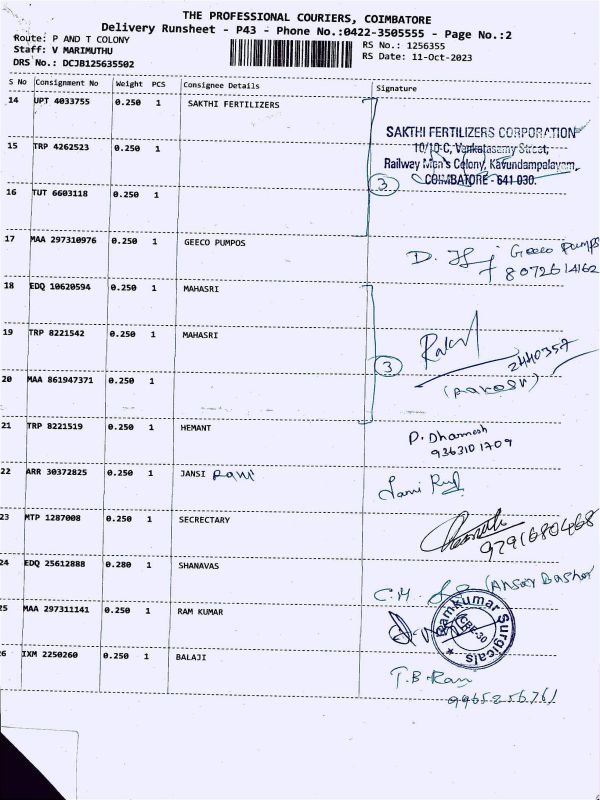 THE PROFESSIONAL COURIERS, COIMBATORE
Delivery Runsheet - P43 - Phone No.:0422-3505555 - Page No.:2
Route: P AND T COLONY
RS No.: 1256355
Staff: V MARIMUTHU
RS Date: 11-Oct-2023
DRS No.: DCJB125635502
S No Consignment No Weight PCS Consignee Details Signature
14 UPT 4033755 0.250 1 SAKTHI FERTILIZERS
SAKTHI FERTILIZERS CORPORATION
10/10-C, Venkatasamy Street,
15 TRP 4262523 0.250 1
Railway Men's Colony, Kavundampalayam,
COIMBATORE - 641 030.
3
16 TUT 6603118 0.250 1
17 MAA 297310976 0.250 1 GEECO PUMPOS
D. Geeco Pumps
8072614162
18 EDQ 10620594 0.250 1 MAHASRI
19 TRP 8221542 0.250 1 MAHASRI
2440357
3
20 MAA 861947371 0.250 1
21 TRP 8221519 0.250 1 HEMANT
P. Dharmesh
9363101709
22 ARR 30372825 0.250 1 JANSI Rani
Jansi Rani
23 MTP 1287008 0.250 1 SECRECTARY
9791680468
24 EDQ 25612888 0.280 1 SHANAVAS
C.M. (Ansar Basha)
25 MAA 297311141 0.250 1 RAM KUMAR
Ramkumar Surgicals
CBE-30
26 IXM 2250260 0.250 1 BALAJI
T.B Ram
9965256761